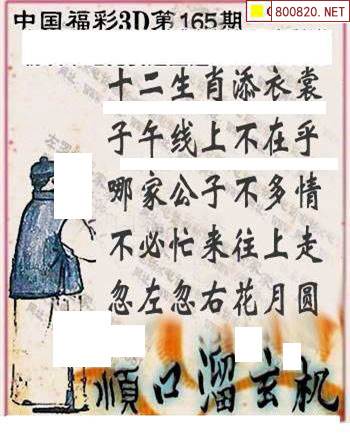 中国福彩3D第165期
800820.NET
十二生肖添衣裳
子午线上不在乎
哪家公子不多情
不必忙来往上走
忽左忽右花月圆
顺口溜玄机